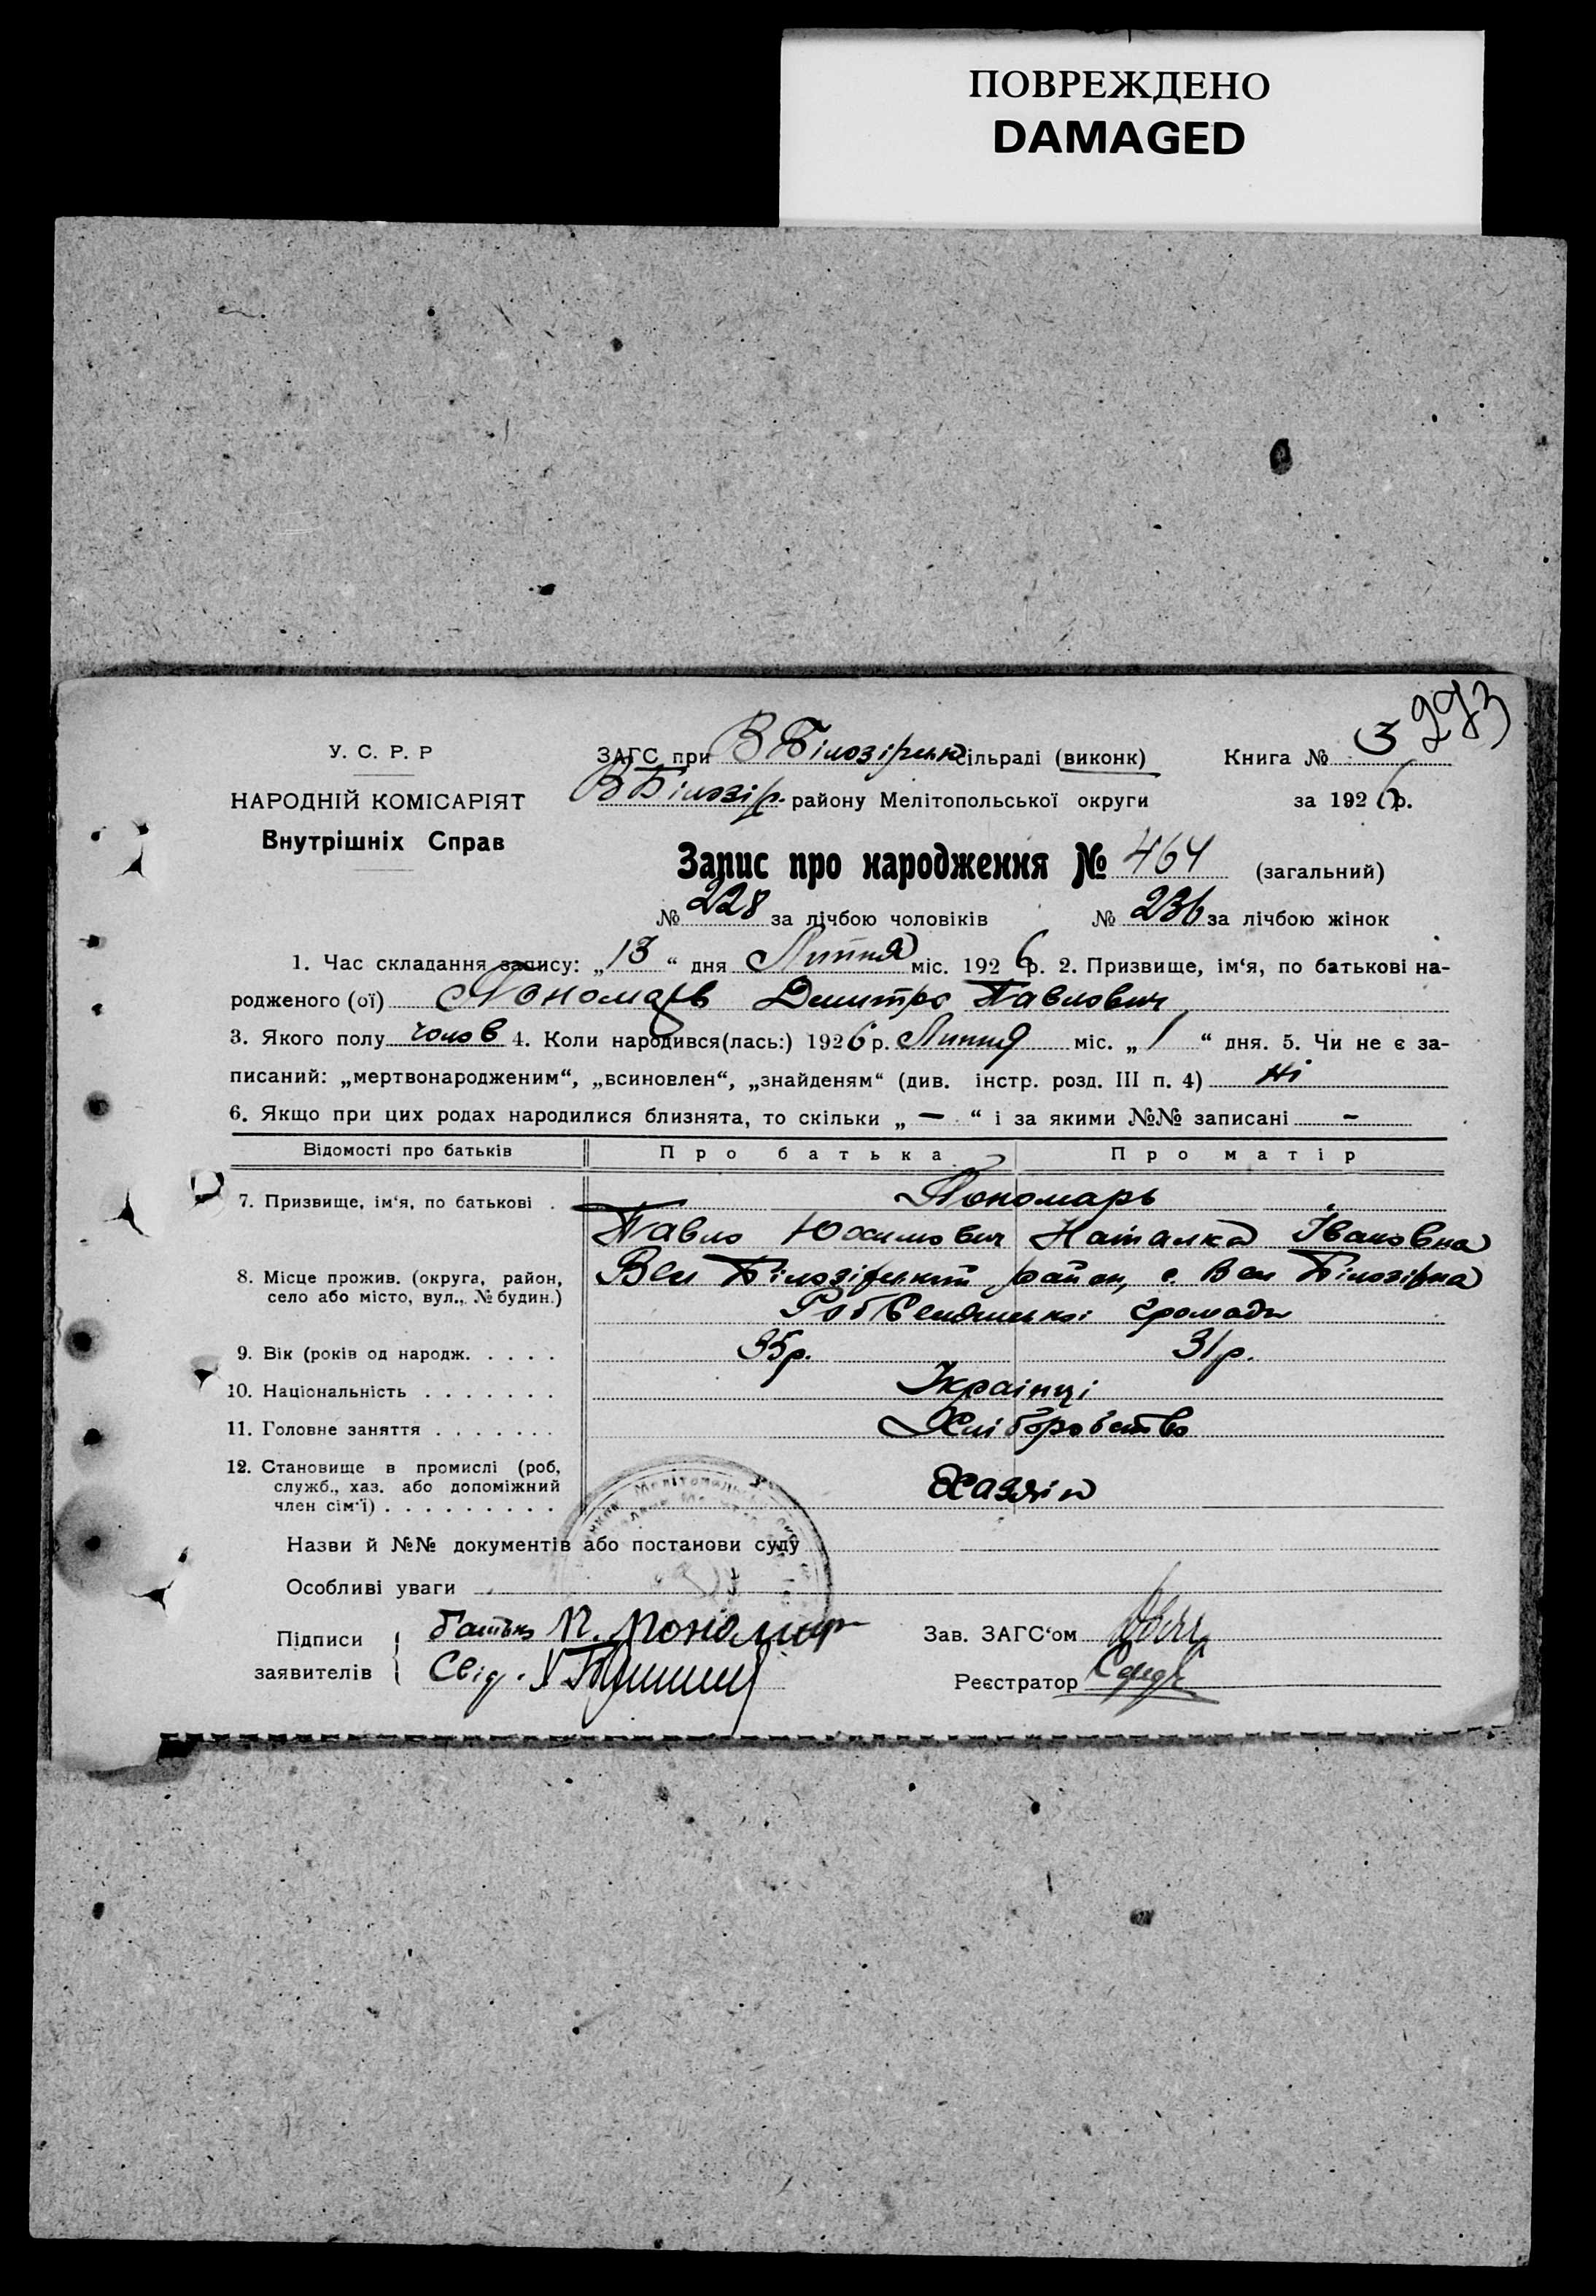 ПОВРЕЖДЕНО
DAMAGED
293
У. С. Р. Р
НАРОДНІЙ КОМІСАРІЯТ
Внутрішніх Справ
ЗАГС при В Білозірськ сільраді (виконк)
Книга № 3
В Білозір. району Мелітопольської округи
за 1926 р.
Запис про народження № 464 (загальний)
№ 228 за лічбою чоловіків № 236 за лічбою жінок
1. Час складання запису: „13“ дня Липня міс. 1926 р. 2. Призвище, ім‘я, по батькові на-
родженого (ої) Пономарь Дмитро Павлович
3. Якого полу чолов 4. Коли народився(лась:) 1926 р. Липня міс. „1“ дня. 5. Чи не є за-
писаний: „мертвонародженим“, „всиновлен“, „знайденям“ (див. інстр. розд. III п. 4) Ні
6. Якщо при цих родах народилися близнята, то скільки „—“ і за якими №№ записані —
Відомості про батьків Про батька Про матір
7. Призвище, ім‘я, по батькові . Пономарь
Павло Юхимович Наталка Івановна
8. Місце прожив. (округа, район, село або місто, вул., № будин.) Вел Білозірський район, с. Вел Білозірка
громади
9. Вік (років од народж. . . . . 35р. 31р.
10. Національність . . . . . . . Українці
11. Головне заняття . . . . . . . Хліборобство
12. Становище в промислі (роб, служб., хаз. або допоміжний член сім‘ї) . . . . . . . . . Хазяїн
Назви й №№ документів або постанови суду
Особливі уваги
Підписи заявителів
батько П. Пономар
Свід.
Зав. ЗАГС‘ом
Реєстратор